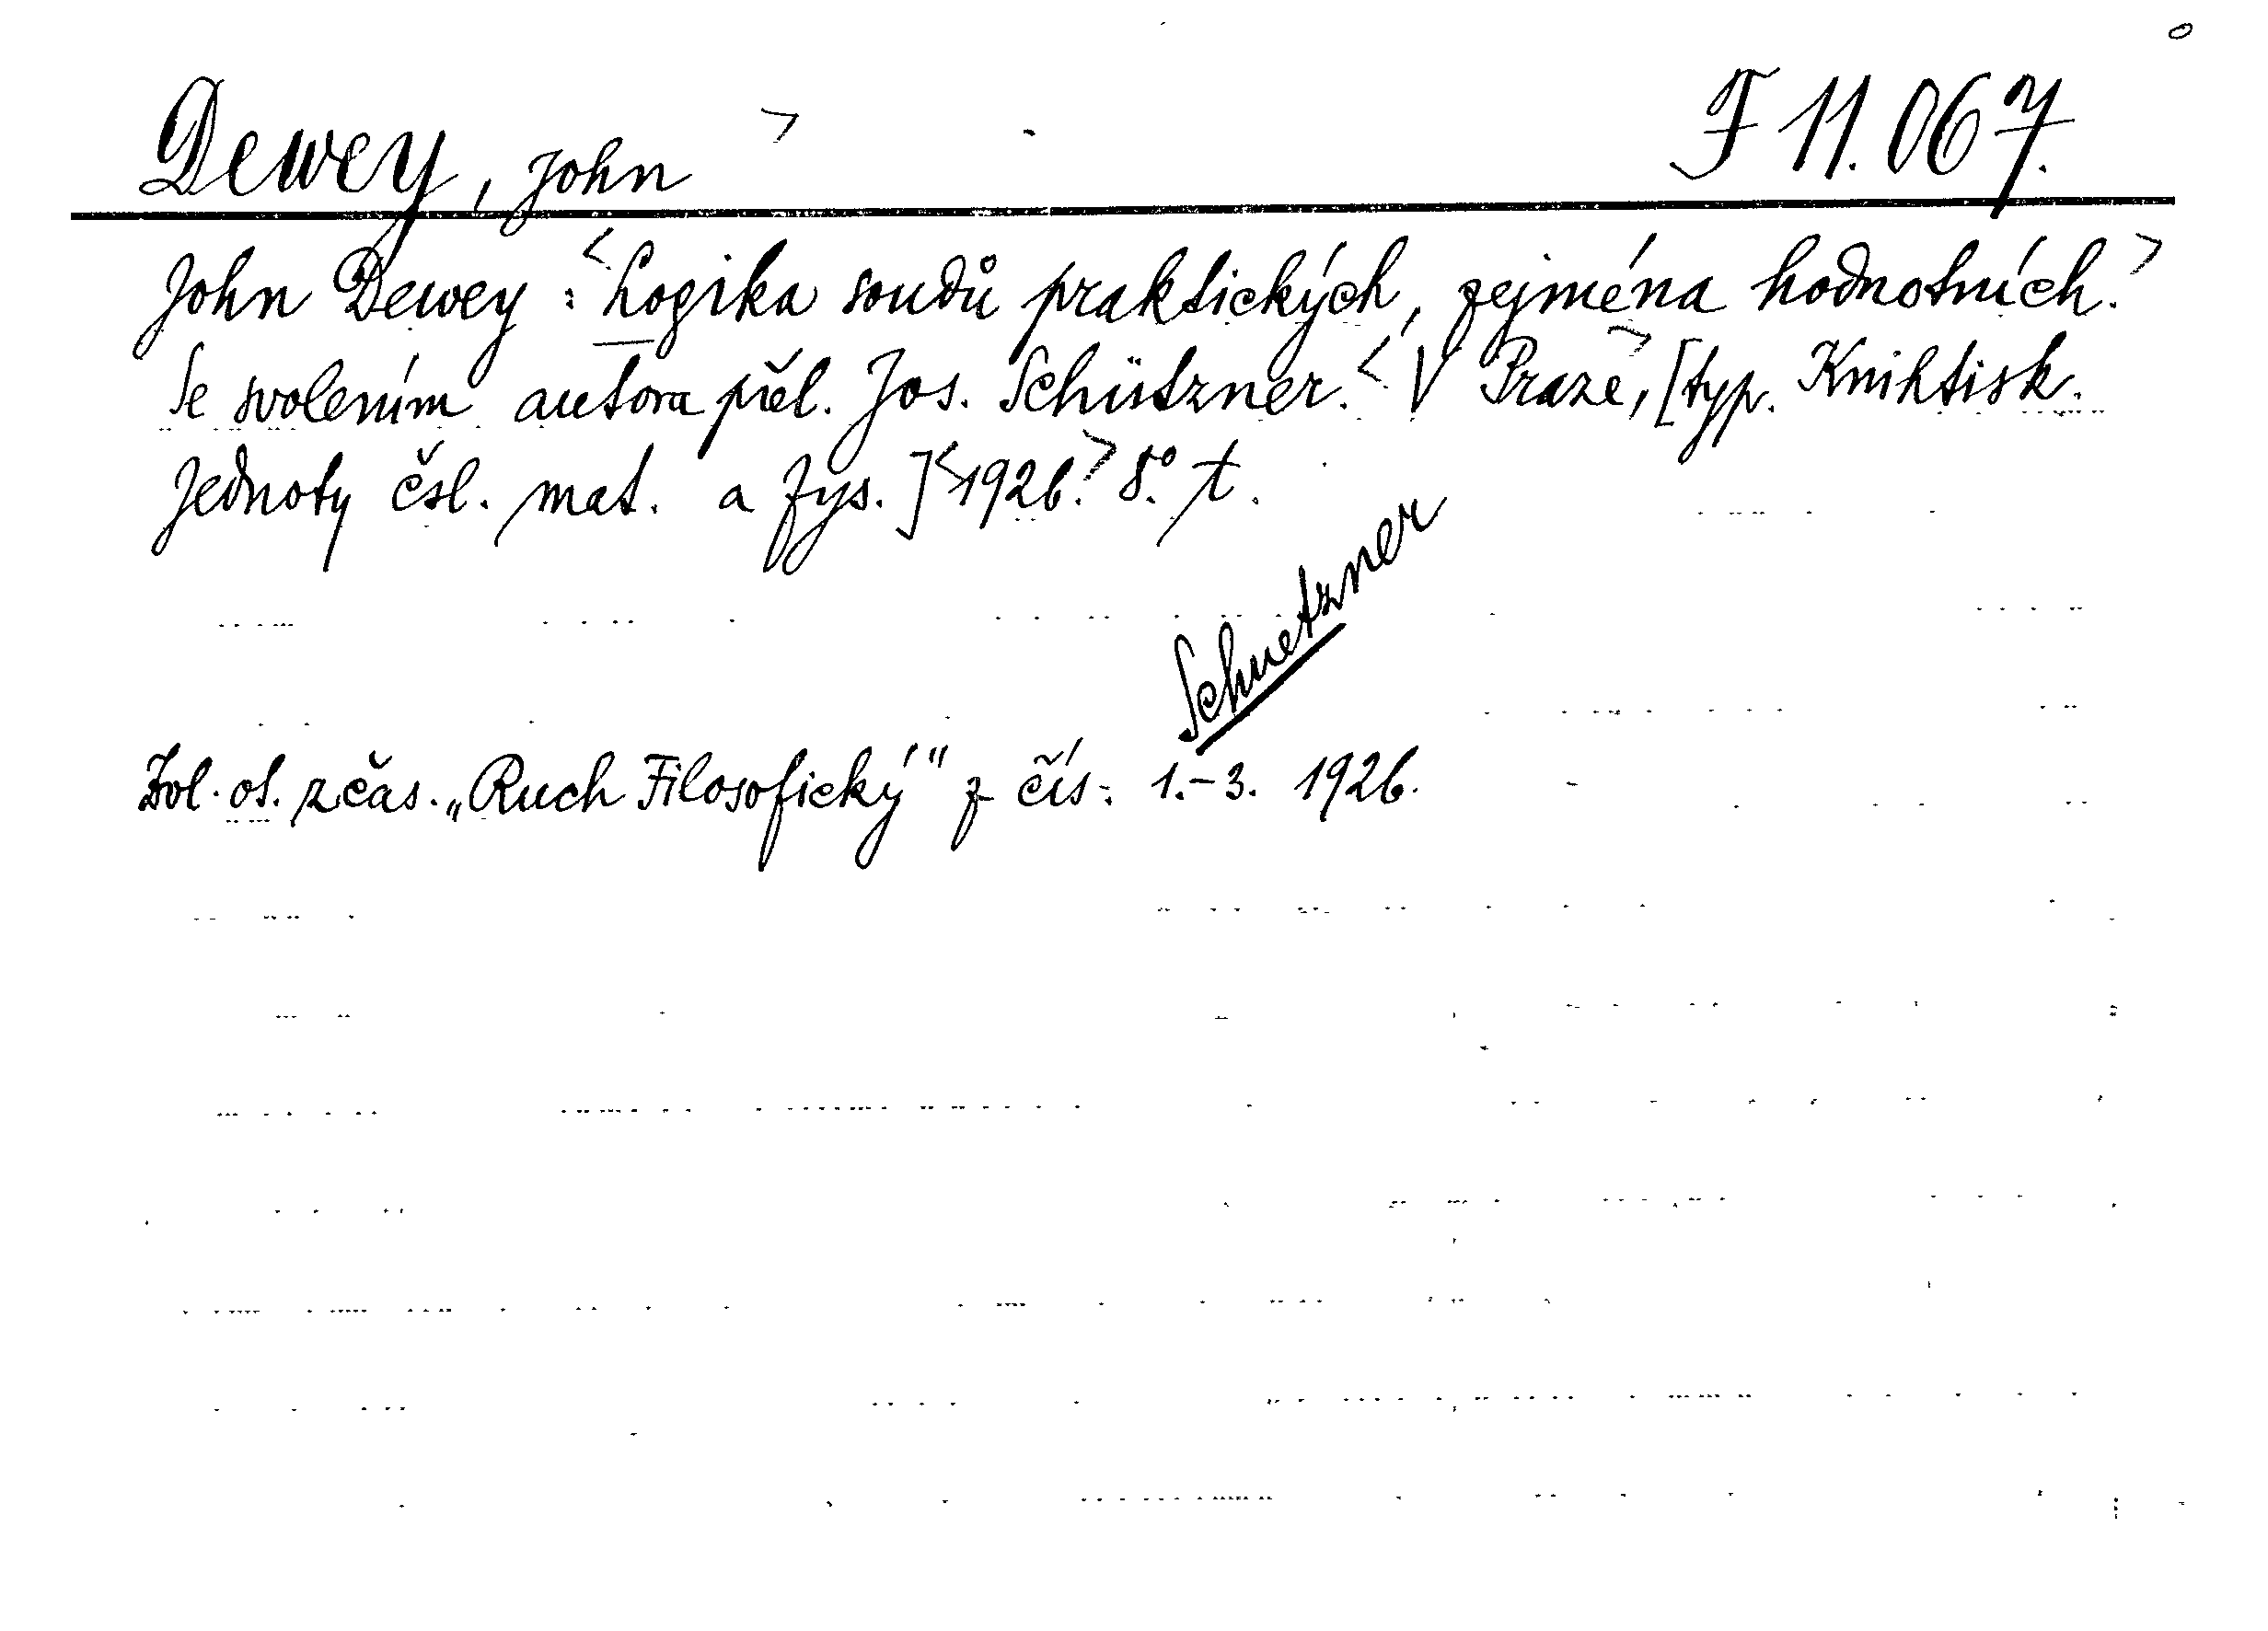 Dewey, John F 11.067.
John Dewey: <Logika soudů praktických, zejména hodnotních.>
Se svolením autora přel. Jos. Schützner.< V Praze,> [typ. Knihtisk.
Jednoty čsl. mat. a fys.]<1926.> 8.° t.
Schuetzner
Zvl. ot. z čas. „Ruch Filosofický" z čís. 1.-3. 1926.